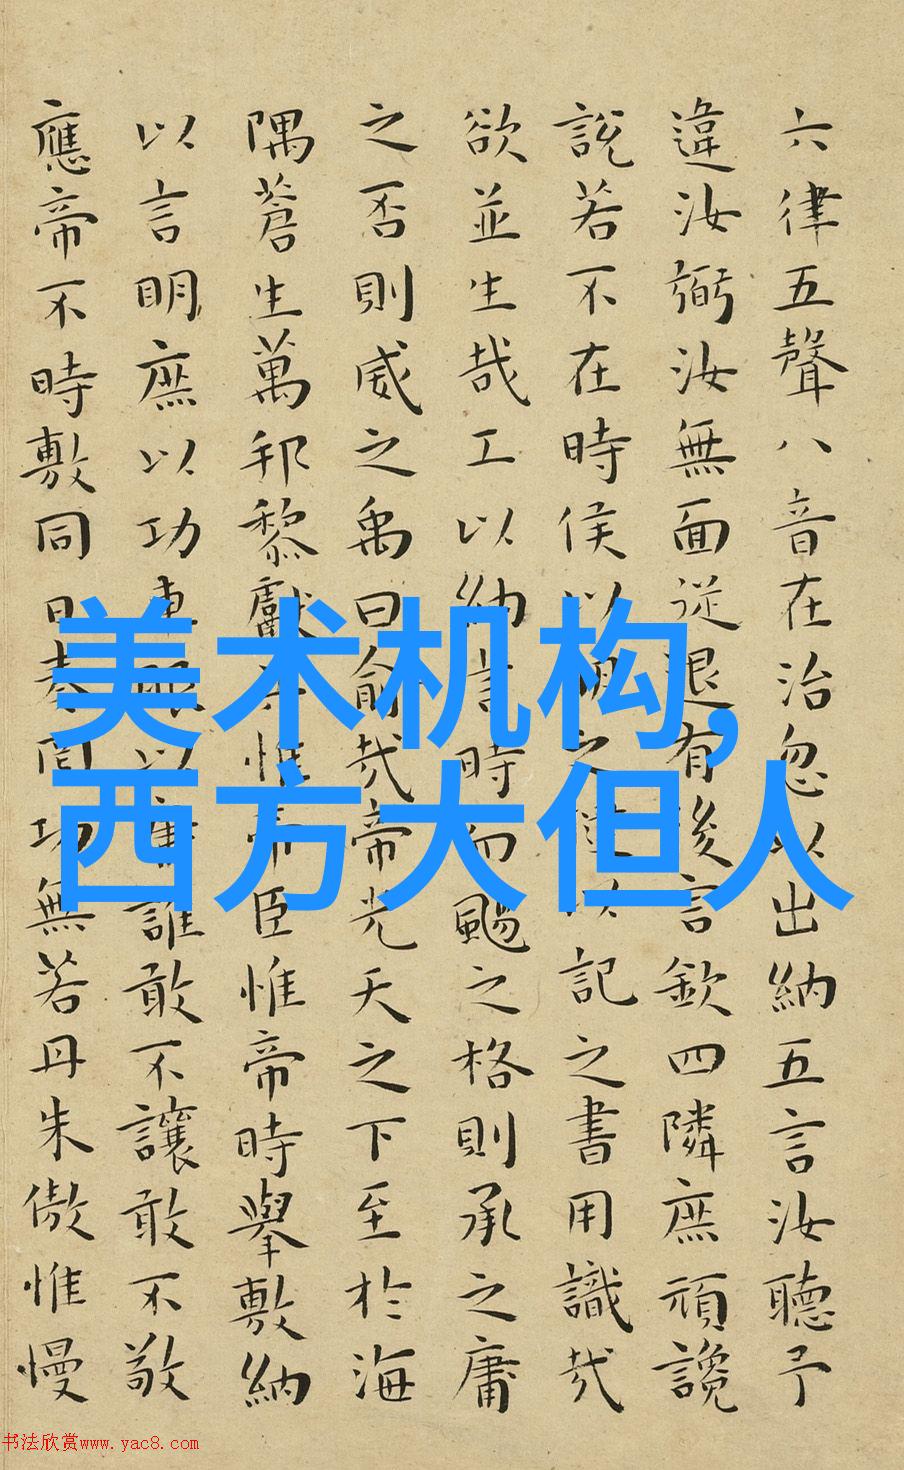 六律五聲八音在治忽以出納五言汝聽予
違汝弼汝無面從退有後言欽四隣庶頑讒
說若不在時侯以明之撻以記之書用識哉
欲並生哉工以納言時而颺之格則承之庸
之否則威之禹曰俞哉帝光天之下至於海
隅蒼生萬邦黎獻共惟帝臣惟帝時舉敷納
以言明庶以功車服以庸誰敢不讓敢不敬
應帝不時敷同日奏罔功無若丹朱傲惟慢
美术机构,
西方大但人
书法欣赏www.yac8.com